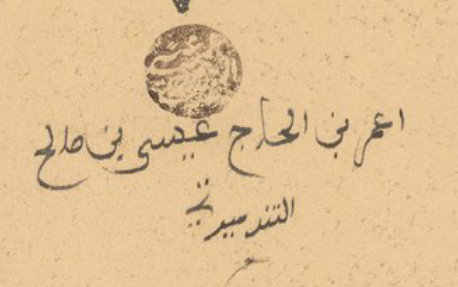 اعمر بن الحاج عيسى بن صالح
التندميرتي